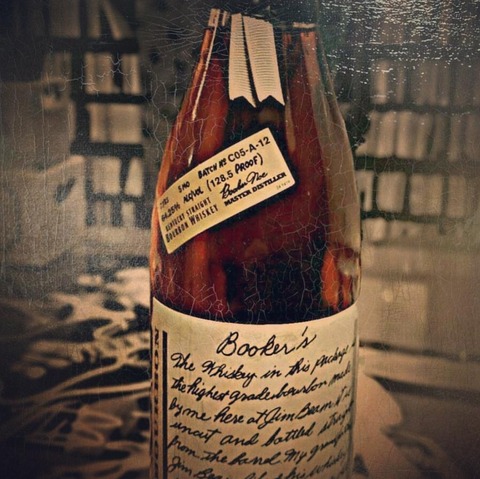 5 MO BATCH № C05-A-12
64.25% ALC/VOL (128.5 PROOF)
KENTUCKY STRAIGHT Booker Noe
BOURBON WHISKEY MASTER DISTILLER
Booker's
The Whiskey in this package
the highest grade bourbon made
by me here at Jim Beam.
uncut and bottled straight
from the barrel. My
Jim Beam